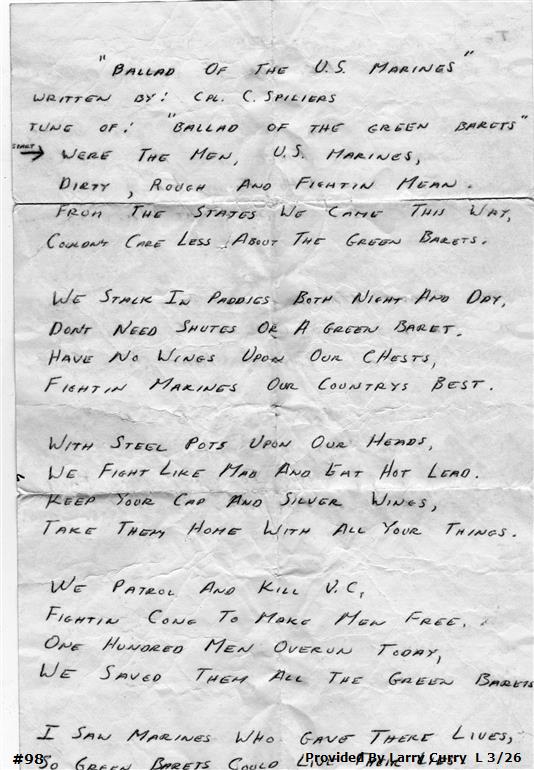 "BALLAD OF THE U.S. MARINES"
WRITTEN BY: CPL. C. SPILIERS
TUNE OF: "BALLAD OF THE GREEN BARETS"
START → WERE THE MEN, U.S. MARINES,
DIRTY, ROUGH AND FIGHTIN MEAN.
FROM THE STATES WE CAME THIS WAY,
COULDNT CARE LESS ABOUT THE GREEN BARETS.
WE STALK IN PADDIES BOTH NIGHT AND DAY,
DONT NEED SHUTES OR A GREEN BARET.
HAVE NO WINGS UPON OUR CHESTS,
FIGHTIN MARINES OUR COUNTRYS BEST.
WITH STEEL POTS UPON OUR HEADS,
WE FIGHT LIKE MAD AND EAT HOT LEAD.
KEEP YOUR CAP AND SILVER WINGS,
TAKE THEM HOME WITH ALL YOUR THINGS.
WE PATROL AND KILL V.C,
FIGHTIN CONG TO MAKE MEN FREE.
ONE HUNDRED MEN OVERUN TODAY,
WE SAVED THEM ALL THE GREEN BARETS
I SAW MARINES WHO GAVE THERE LIVES,
SO GREEN BARETS COULD LIVE THEIR LIES
#98 Provided By Larry Curry L 3/26